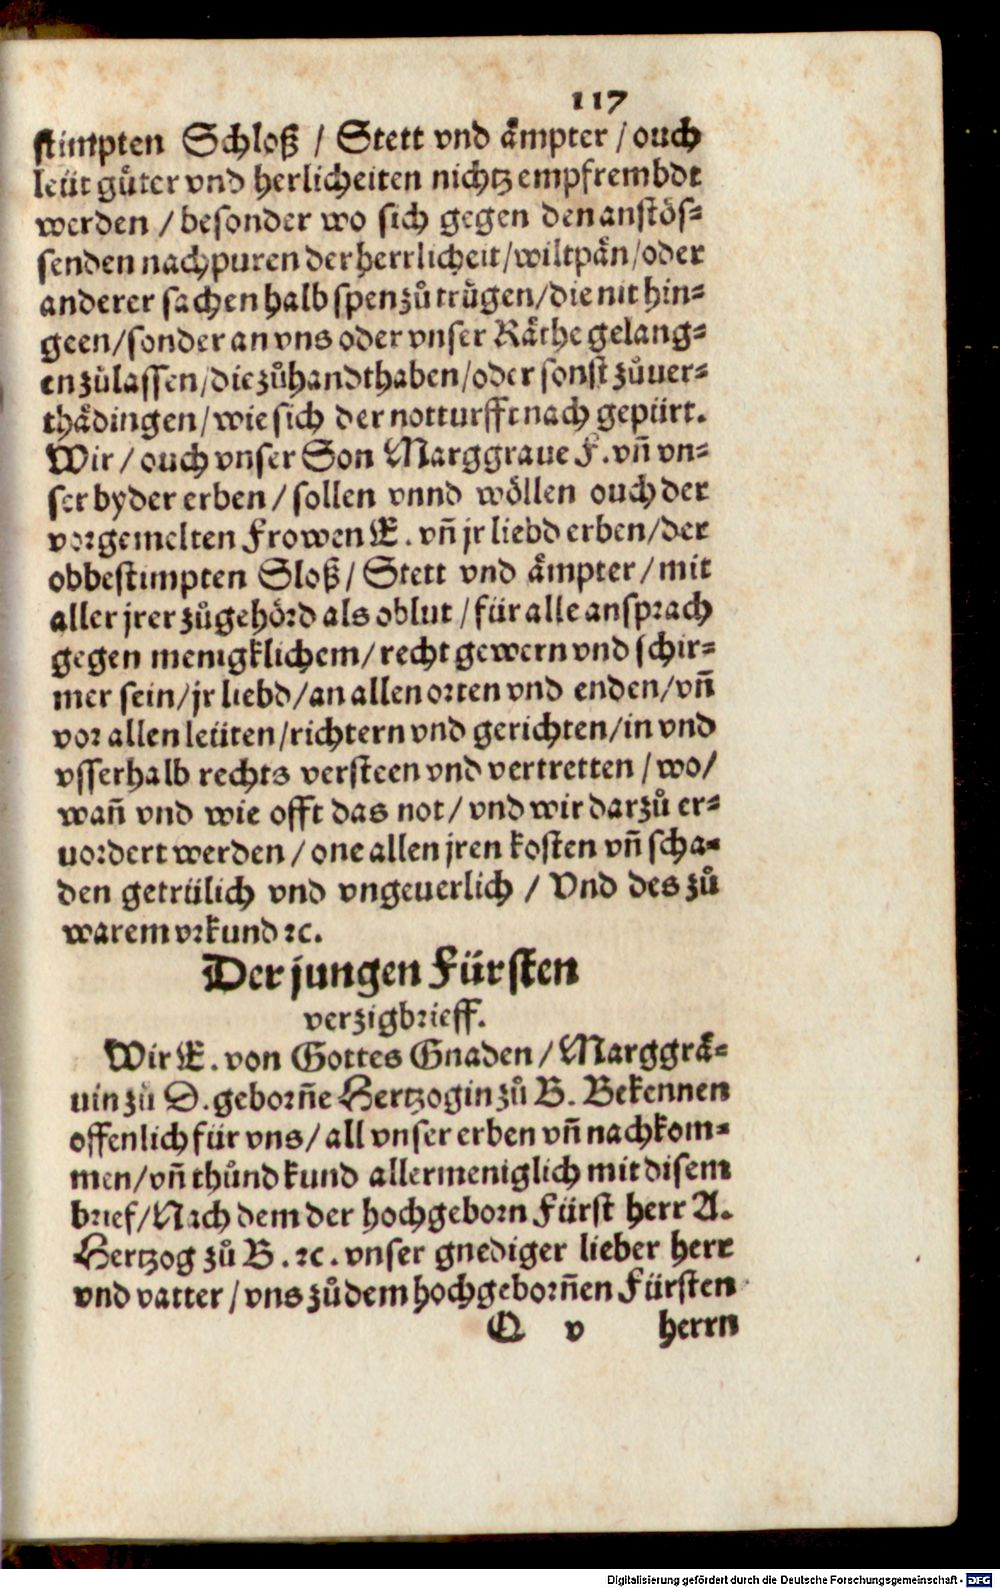 117
stimpten Schloß / Stett vnd aͤmpter / ouch
leüt guͤter vnd herlicheiten nichtz empfrembdt
werden / besonder wo sich gegen den anstoͤs=
senden nachpuren der herrlicheit / wiltpaͤn / oder
anderer sachen halb spen zuͦ truͤgen / die nit hin=
geen / sonder an vns oder vnser Raͤthe gelang=
en zuͦlassen / die zuͦhandthaben / oder sonst zuͦuer=
thaͤdingen / wie sich der notturfft nach gepürt.
Wir / ouch vnser Son Marggraue F. vñ vn=
ser byder erben / sollen vnnd woͤllen ouch der
vorgemelten Frowen E. vñ jr liebd erben / der
obbestimpten Sloß / Stett vnd aͤmpter / mit
aller jrer zuͦgehoͤrd als oblut / für alle ansprach
gegen menigklichem / recht gewern vnd schir=
mer sein / jr liebd / an allen orten vnd enden / vñ
vor allen leüten / richtern vnd gerichten / in vnd
vsserhalb rechts versteen vnd vertretten / wo /
wañ vnd wie offt das not / vnd wir darzuͦ er=
uordert werden / one allen jren kosten vñ scha=
den getrülich vnd vngeuerlich / Vnd des zuͦ
warem vrkund ꝛc.
Der jungen Fürsten
verzigbrieff.
Wir E. von Gottes Gnaden / Marggraͤ=
uin zuͦ D. geborñe Hertzogin zuͦ B. Bekennen
offenlich für vns / all vnser erben vñ nachkom=
men / vñ thuͦnd kund allermeniglich mit disem
brief / Nach dem der hochgeborn Fürst herr A.
Hertzog zuͦ B. ꝛc. vnser gnediger lieber herr
vnd vatter / vns zuͦ dem hochgeborñen Fürsten
Q v herrn
Digitalisierung gefördert durch die Deutsche Forschungsgemeinschaft - DFG